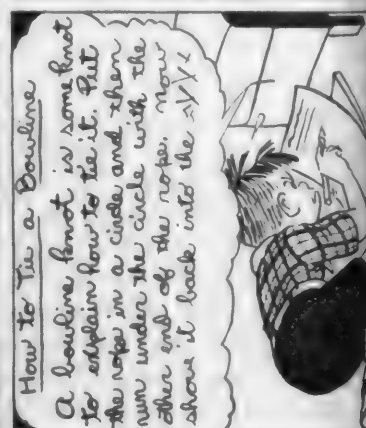 How to Tie a Bowline
A bowline knot is some knot
to explain how to tie it. Put
the rope in a circle and then
run under the circle with the
other end of the rope. Now
shove it back into the